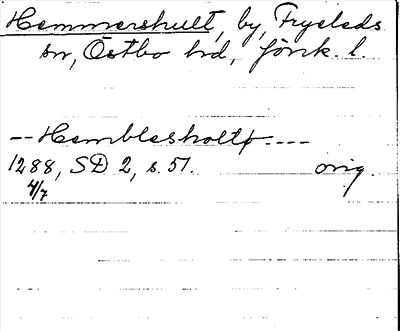 Hemmershult, by, Fryeleds
sn, Östbo hd, Jönk. l
-- Hemblesholtþ ----
1288, SD 2, s. 51. orig.
4/7